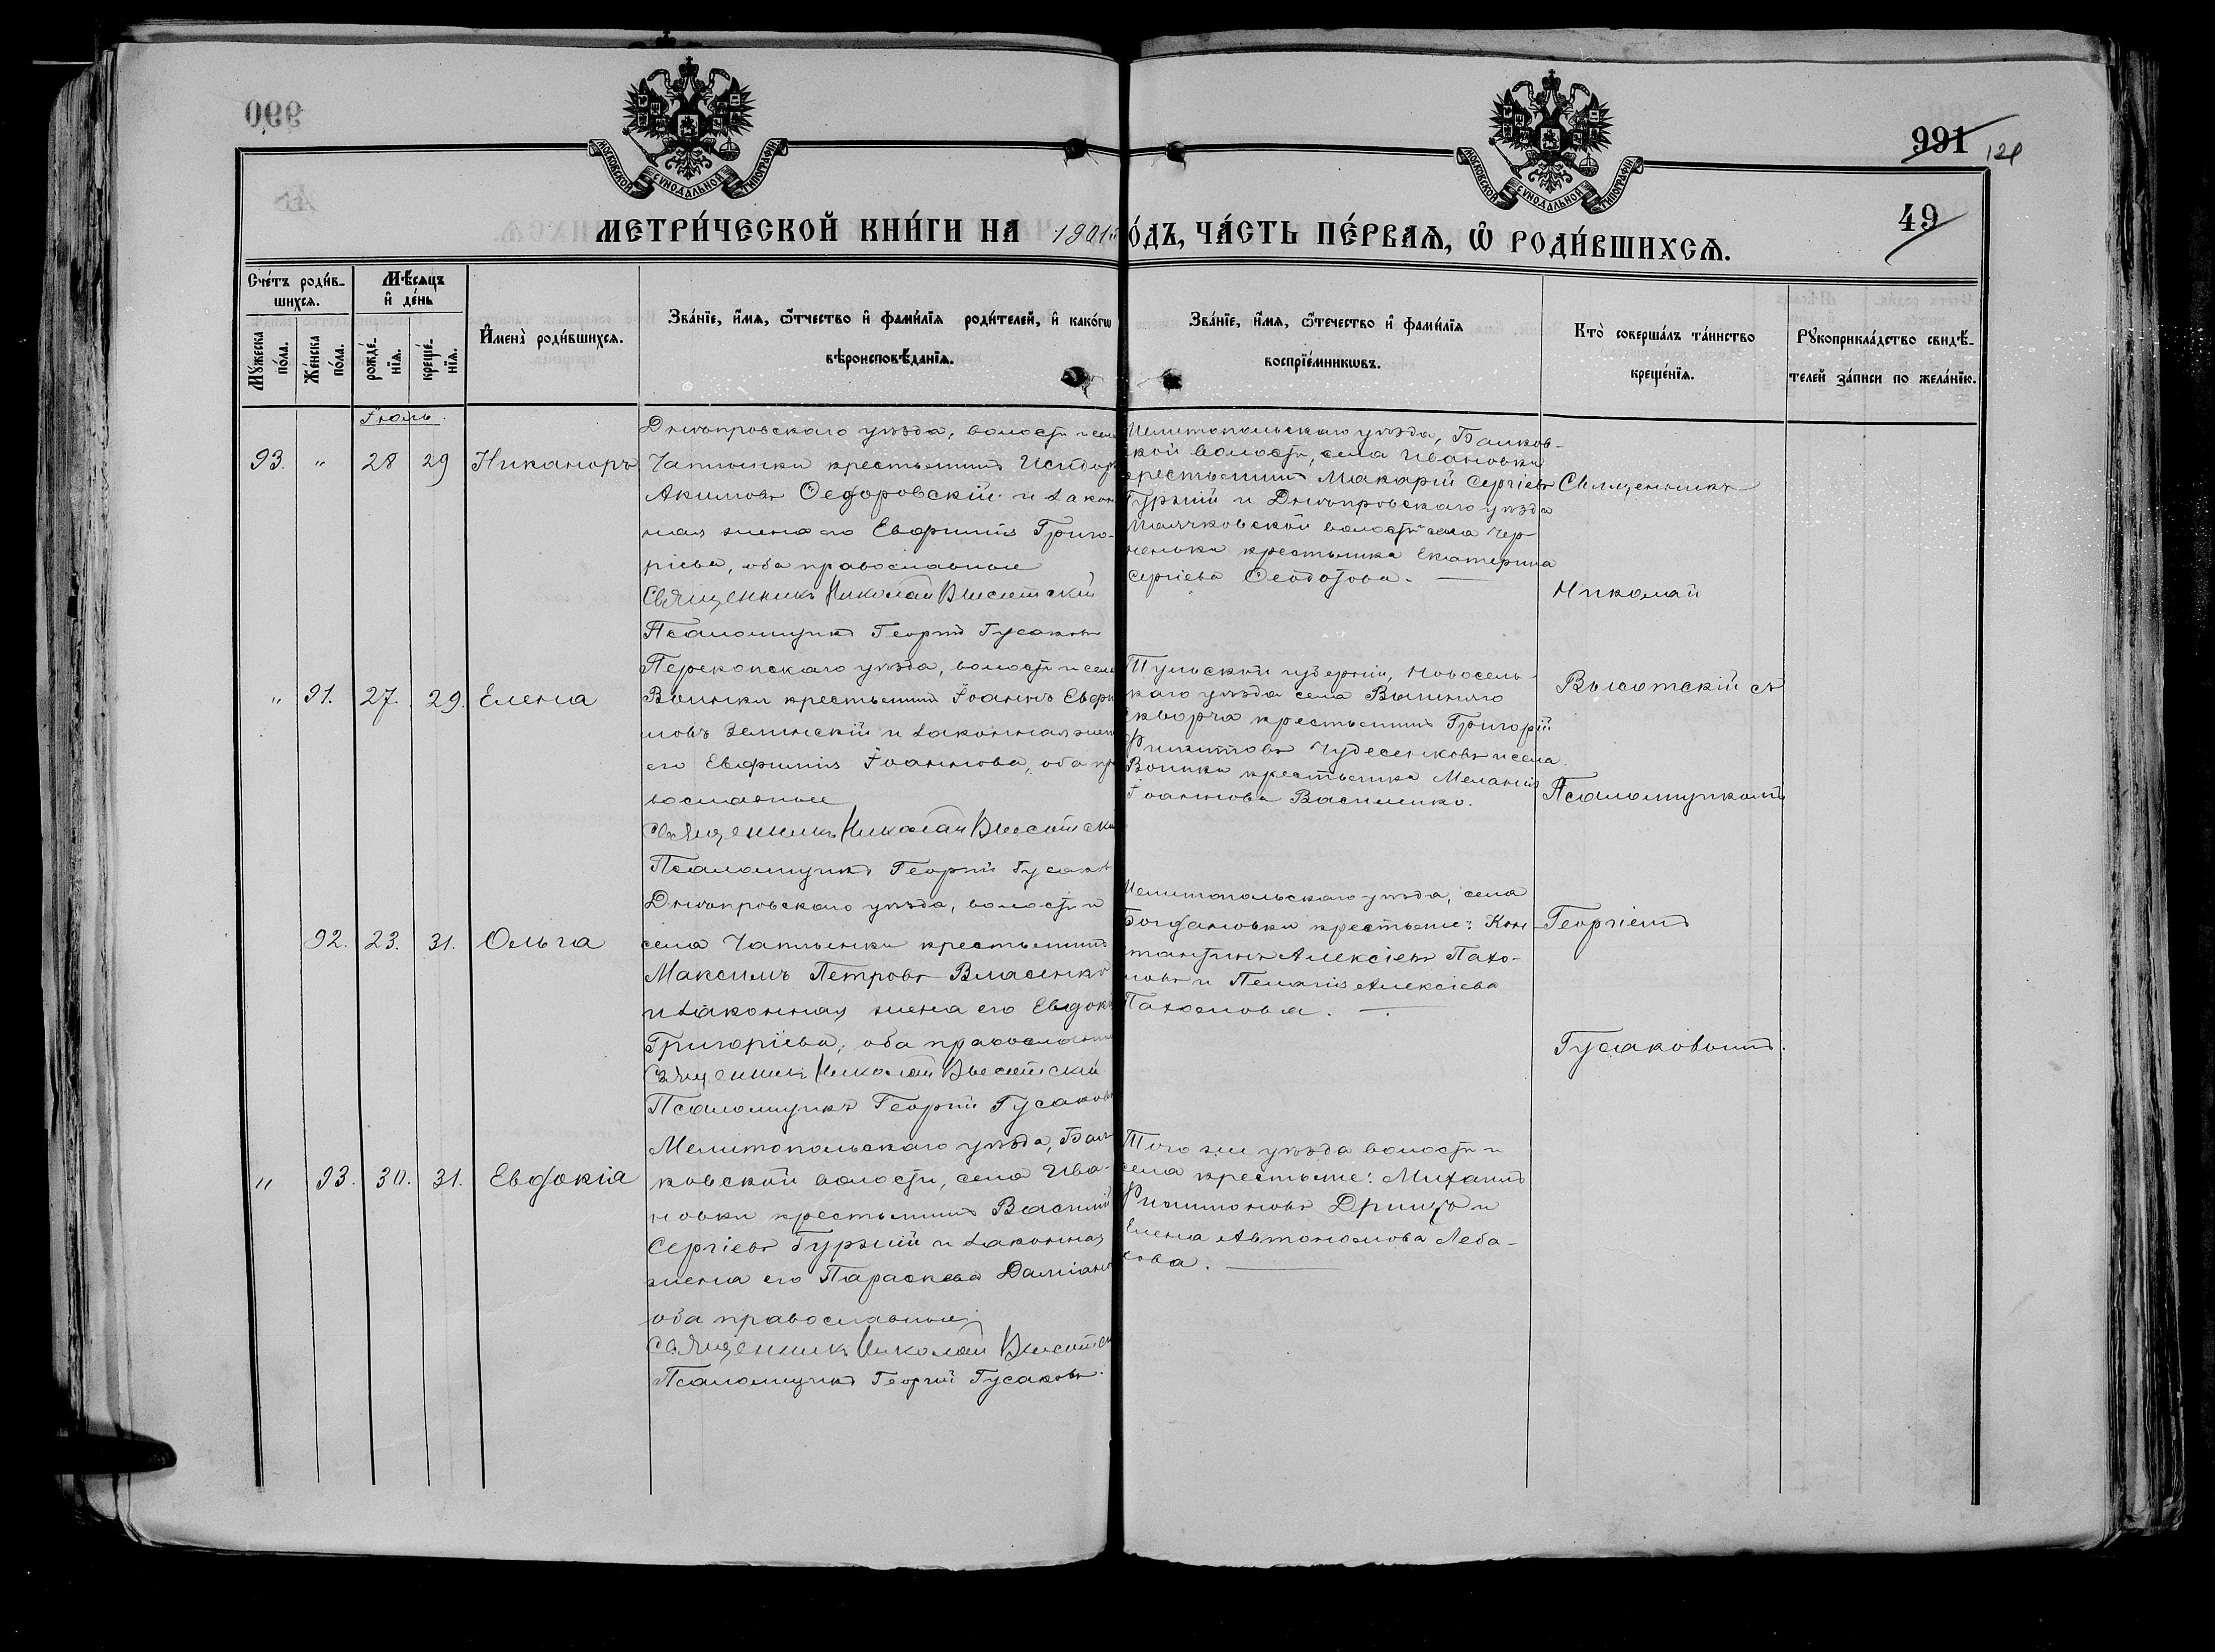 991 121
49
МОСКОВСКОЙ СѴНОДАЛЬНОЙ ТИПОГРАФІИ
МОСКОВСКОЙ СѴНОДАЛЬНОЙ ТИПОГРАФІИ
МЕТРИ́ЧЕСКОЙ КНИ́ГИ НА 1901 О́ДЪ, ЧА́СТЬ ПЕ́РВАѦ, Ѡ РОДИ́ВШИХСѦ.
Сче́тъ роди́в-
шихсѧ.
Мꙋжеска по́ла.
Же́нска по́ла.
Мѣ́сѧцъ и де́нь
рожде́-нїѧ.
креще́-нїѧ.
И҆мена̀ роди́вшихсѧ.
Зва́нїе, и҆́мѧ, ѻ҆́тчество и҆ фами́лїѧ роди́телей, и҆ како́гѡ
вѣроисповѣ́данїѧ.
Зва́нїе, и҆́мѧ, ѻ҆те́чество и҆ фами́лїѧ
воспрїе́мникѡвъ.
Кто̀ соверша́лъ та́инство
креще́нїѧ.
Рꙋкоприкла́дство свидѣ́-
телей за́писи по жела́нїю.
Іюль.
93. " 28 29 Никаноръ
Днѣпровскаго уѣзда, волости и села
Чаплинки крестьянинъ Исидоръ
Акимовъ Ѳедоровскій и закон-
ная жена его Евфимія Григо-
ріева, оба православные
Священникъ Николай Высотскій
Псаломщикъ Георгій Гусаковъ
Мелитопольскаго уѣзда, Балков-
ской волости, села Ивановки
крестьянинъ Макарій Сергіевъ
Гуржій и Днѣпровскаго уѣзда
Маячковской волости села Чер-
неньки крестьянка Екатерина
Сергіева Ѳеодотова.
Священникъ
Николай
Высотскій съ
Псаломщикомъ
Георгіемъ
Гусаковымъ.
" 91. 27. 29. Елена
Перекопскаго уѣзда, волости и села
Воинки крестьянинъ Іоаннъ Евфи-
мовъ Зелинскій и законная жена
его Евфимія Іоаннова, оба пра-
вославные
Священникъ Николай Высотскій
Псаломщикъ Георгій Гусаковъ
Тульской губерніи, Новосель-
скаго уѣзда села Вышняго
Скворча крестьянинъ Григорій
Филипповъ Чудесенковъ и села
Воинки крестьянка Меланія
Іоаннова Василенко.
92. 23. 31. Ольга
Днѣпровскаго уѣзда, волости и
села Чаплинки крестьянинъ
Максимъ Петровъ Власенко
и законная жена его Евдокія
Григоріева, оба православные
Священникъ Николай Высотскій
Псаломщикъ Георгій Гусаковъ
Мелитопольскаго уѣзда, села
Богдановки крестьяне: Кон-
стантинъ Алексіевъ Пахо-
мовъ и Пелагія Алексіева
Пахомова.
" 93. 30. 31. Евдокія
Мелитопольскаго уѣзда, Бал-
ковской волости, села Ива-
новки крестьянинъ Василій
Сергіевъ Гуржій и законная
жена его Параскева Даміанова
оба православные
Священникъ Николай Высотскій
Псаломщикъ Георгій Гусаковъ.
Того же уѣзда волости и
села крестьяне: Михаилъ
Филимоновъ и
Елена Автономова Леба-